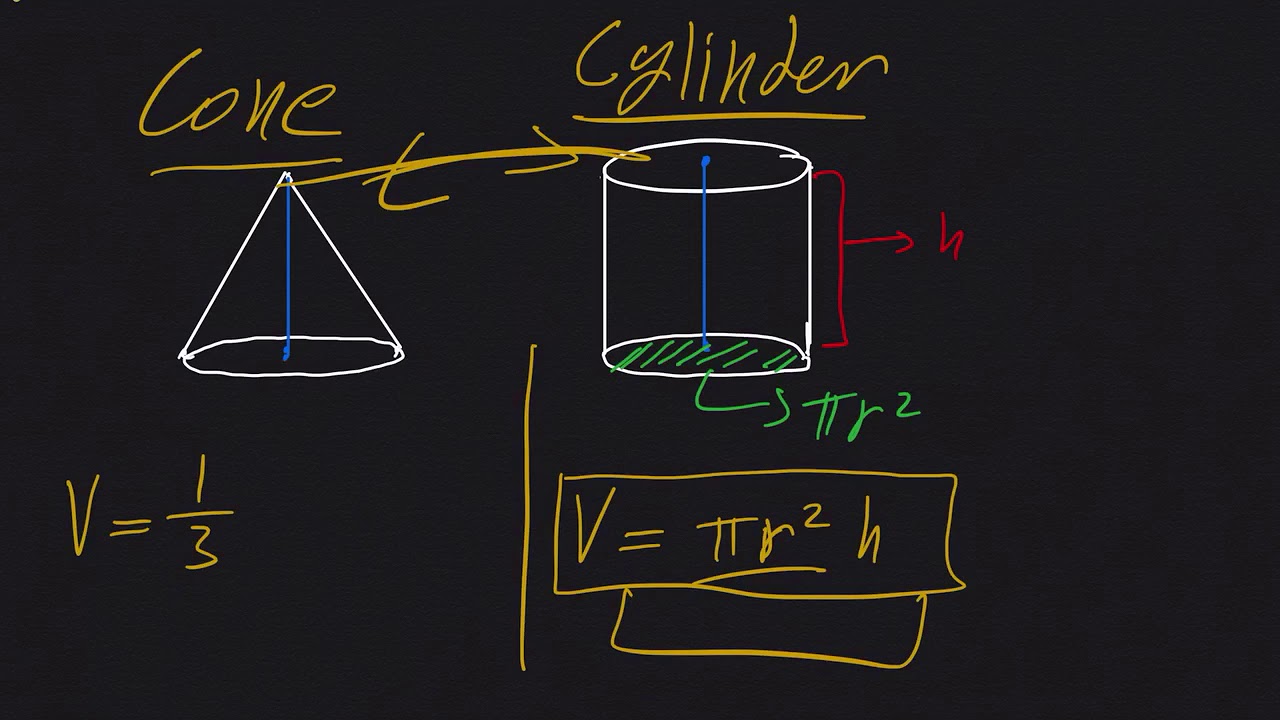 Cone
Cylinder
h
πr²
V = 1/3
V = πr² h